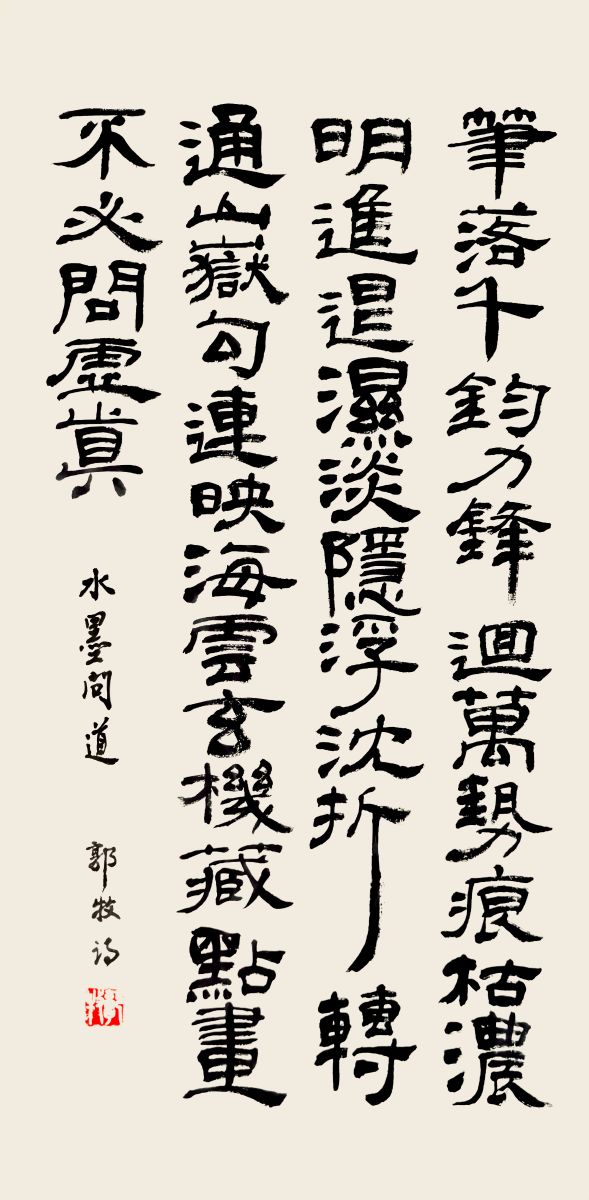 筆落千鈞力鋒迴萬勢痕枯濃
明進退濕淡隱浮沈折轉
通山嶽勾連映海雲玄機藏點畫
不必問虛真
水墨问道
郭牧诗